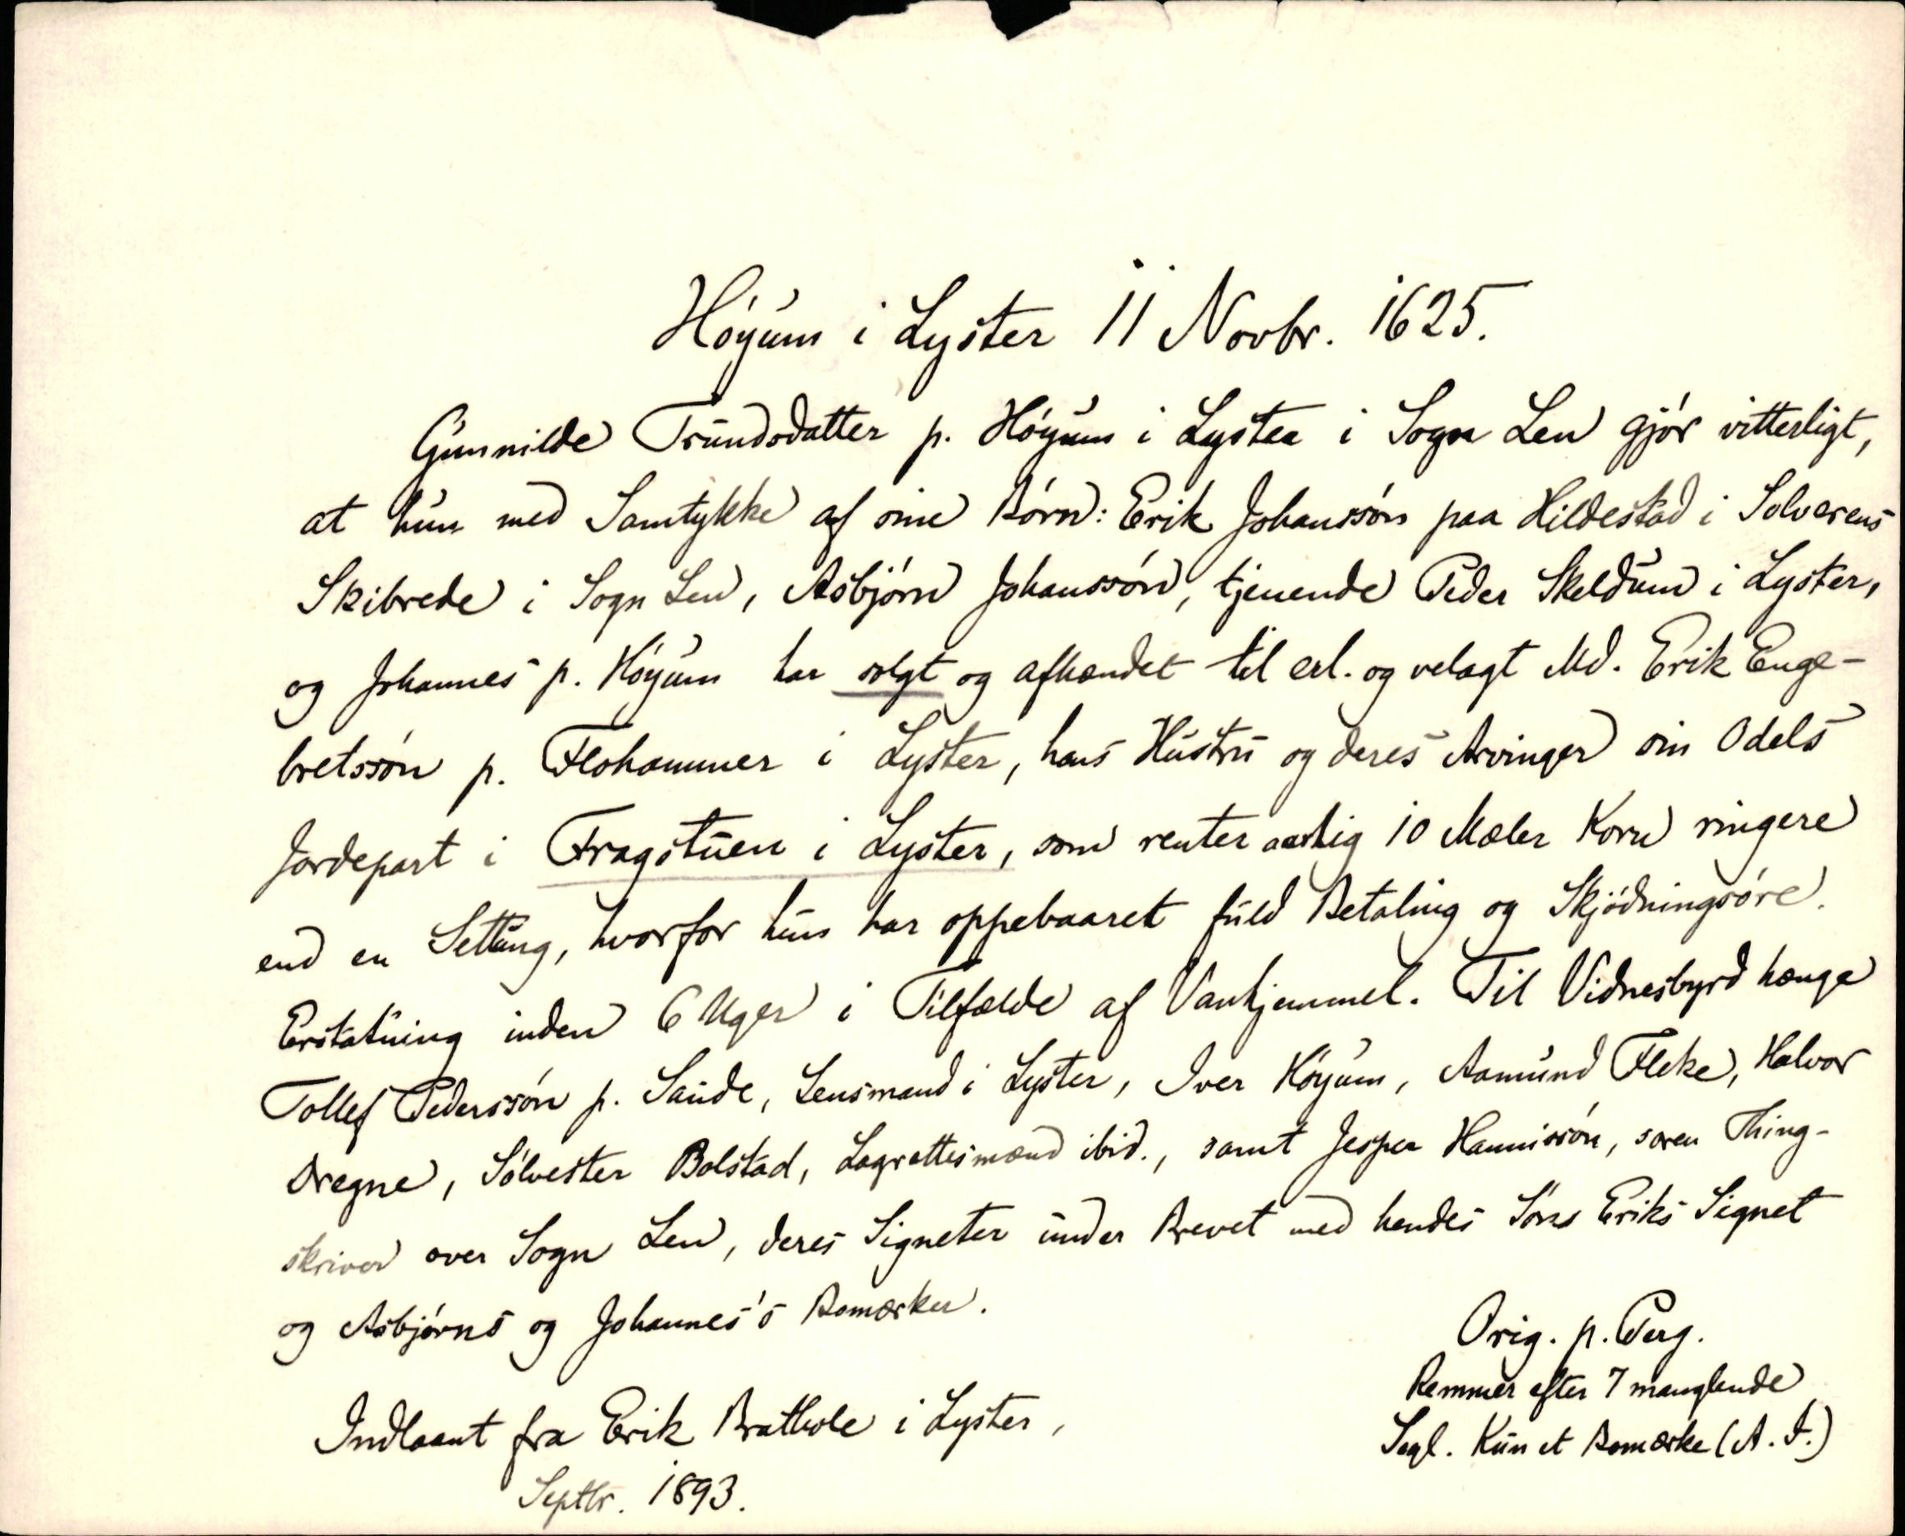 Höyum i Lyster 11 Novbr. 1625.
Gunnilde Trundsdatter p. Höyum i Lyster i Sogn Len gjör vitterligt,
at hun med Samtykke af sine Börn: Erik Johanssön paa Hildestad i Solverens
Skibrede i Sogn Len, Asbjörn Johanssön, tjenende Peder Skeldum i Lyster,
og Johannes p. Höyum har solgt og afhændet til erl. og velagt Md. Erik Enge-
bretssön p. Flohammer i Lyster, hans Hustru og deres Arvinger sin Odels
Jordepart i Fragstuen i Lyster, som renter aarlig 10 Mæler Korn ringere
end en Setting, hvorfor hun har oppebaaret fuld Betaling og Skjödningsöre.
Erstatning inden 6 Uger i Tilfælde af Vanhjemmel. Til Vidnesbyrd hænge
Tollef Pederssön p. Sande, Lensmand i Lyster, Iver Höyum, Aamund Fleke, Halvor
Dregne, Sölvester Bolstad, Lagrettesmænd ibid., samt Jesper Hannissön, soren Thing-
skriver over Sogn Len, deres Signeter under Brevet med hendes Söns Eriks Signet
og Asbjörns og Johannes's Bomærker.
Orig. p. Perg.
Remmer efter 7 manglende
Segl. Kun et Bomærke (A. I.)
Indlaant fra Erik Brathole i Lyster,
Septbr. 1893.